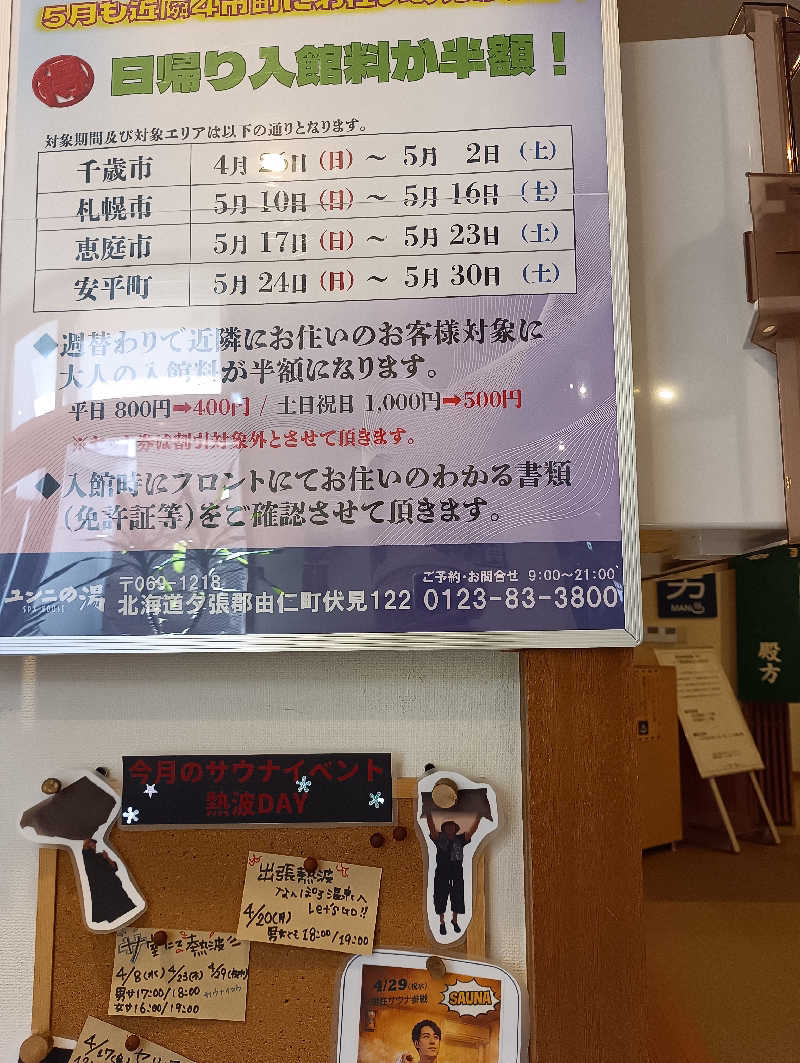 日帰り入館料が半額！
対象期間及び対象エリアは以下の通りとなります。
千歳市 4月 26日 (日) ～ 5月 2日 (土)
札幌市 5月 10日 (日) ～ 5月 16日 (土)
恵庭市 5月 17日 (日) ～ 5月 23日 (土)
安平町 5月 24日 (日) ～ 5月 30日 (土)
◆週替わりで近隣にお住いのお客様対象に
大人の入館料が半額になります。
平日 800円➡400円 / 土日祝日 1,000円➡500円
券は割引対象外とさせて頂きます。
◆入館時にフロントにてお住いのわかる書類
(免許証等)をご確認させて頂きます。
ユンニの湯
SPA HOUSE
〒069-1218
北海道夕張郡由仁町伏見122
ご予約・お問合せ 9:00～21:00
0123-83-3800
男
MAN
殿方
今月のサウナイベント
熱波DAY
出張熱波
ながぬま温泉へ
Let's GO!!
4/20(月)
男女とも 18:00/19:00
4/8(水) 4/23(木) 4/29(祝水)
男サ17:00/18:00
女サ16:00/19:00
4/29(祝水)
SAUNA
4/17(金)